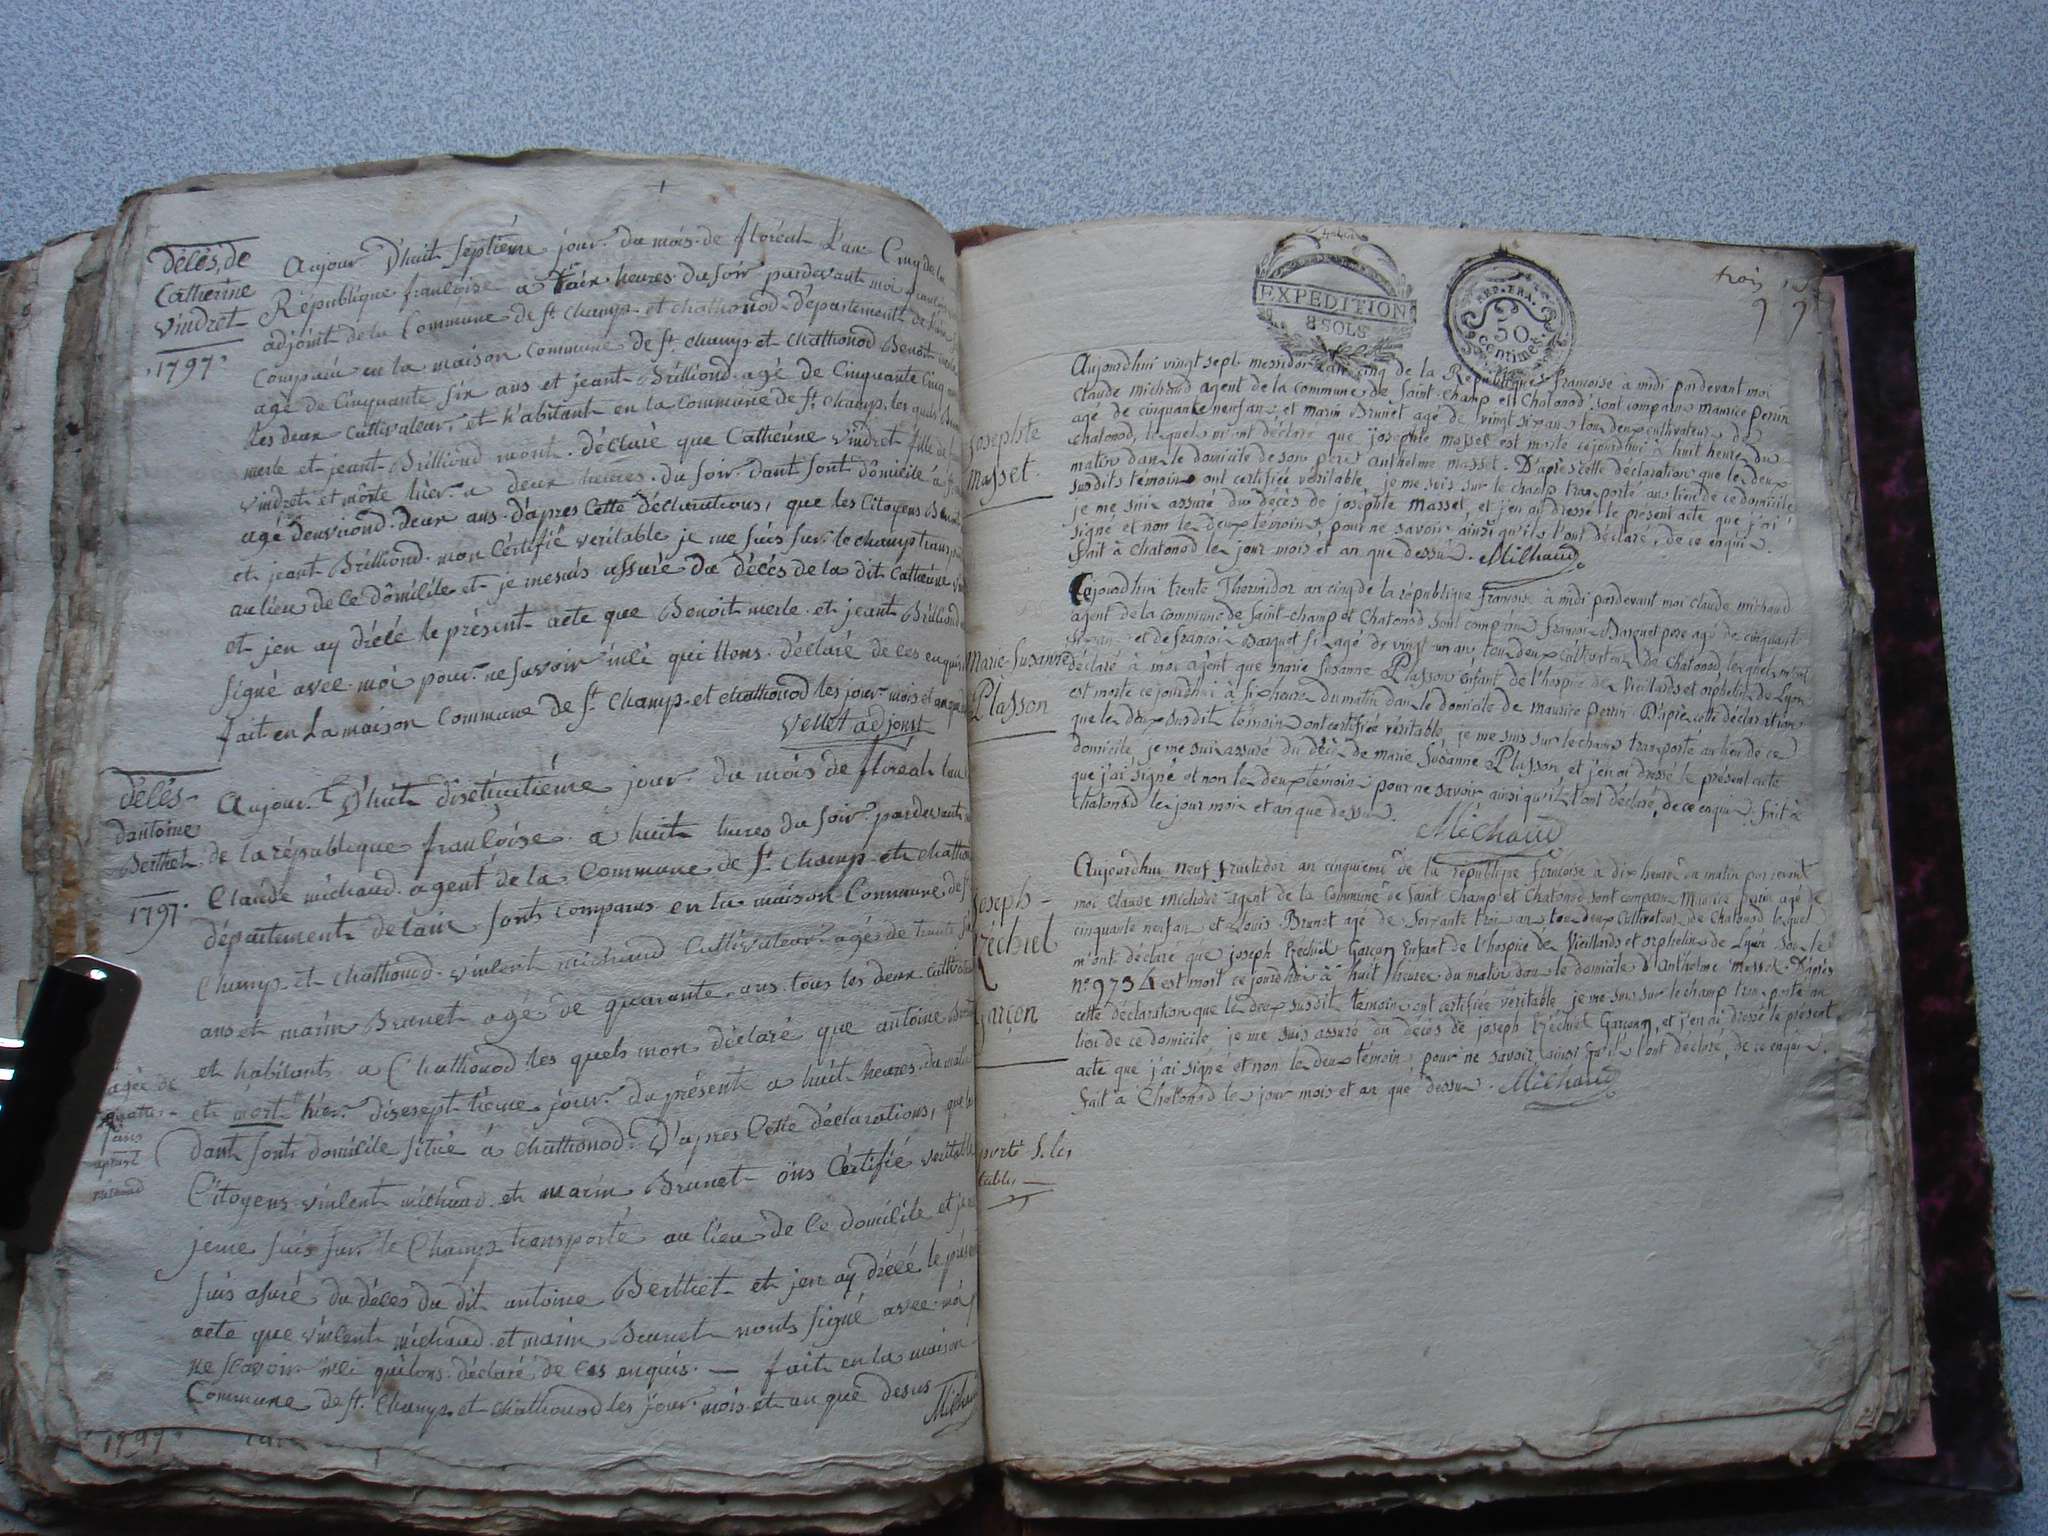 délés, de
Catherine
Vindret
1797
Aujour D'huit septième jour du mois de floréal L'an Cinq de la
République françoise a heures du soir pardevant moi
adjoint de la Commune de st champ et chathonod département de
Comparu en la maison Commune de st champ et chathonod Benoit
agé de Cinquante six ans et jeant Brilliond agé de Cinquante Cinq
les deux Cultivateur, et h'abitant en la Commune de st champ, les quels
merle et jeant Brilliond mont déclaré que Catherine vindret fille de
vindret et môrte hier a deux heures du soir dant sont dômicile á
agé d'environd deux ans d'apres Cette déclarations, que les Citoyens
et jeant Brilliond mon Certifié veritable je me suis sur le champ
au lieu de Ce dômicile et je me suis assuré du délés de la dit Catherine
et jen ay drélé le présent acte que Benoit merle et jeant Brilliond
signé avec moi pour ne savoir inli qui llons déclaré de les enquis
fait en La maison Commune de st Champ et chathonod les jour mois et an que
Vellet adjoint
délés
dantoine
Berthet
1797
Aujour D'huit disetuitiéme jour du mois de floréal
de la république françoise a huit hures du soir pardevant
Claude michaud agent de la Commune de st champ et
département de lain sont comparus en la maison Commune de
Champ et chathonod vinlent michaud Cultivateur agé de trente
ans et marin Brunet agé de quarante ans tous les deux
et habitant a Chathonod les quels mon déclaré que antoine
et mort hier disesept tième jour du présent a huit heures du
dant sont domicile sitüé á chathonod D'apres Cette déclarations, que
agée de
quatre
ans
michaud
Citoyens vinlent michaud et marin Brunet ons Certifié
jeme suis sur le Champ transporté au lieu de Ce domicile et
suis asuré du déles du dit antoine Berthet et jen ay drélé le
acte que vinlent michaud et marin Brunet nonts signé avec moi
ne scavoir inli quilons déclaré de les enquis — fait en la maison
Commune de st Champ et chathonod les jour mois et an que desus
1797
EXPEDITION
8 SOLS
REP. FRA.
50
centimes
trois
Josephte
Masset
Aujourdhui vingt sept messidor an cinq de la République françoise à midi pardevant moi
Claude michaud agent de la commune de Saint-champ et Chatonod sont comparus maurice perrin
agé de cinquante neuf ans et marin Brunet agé de vingt six ans tou deux cultivateurs de
chatonod, lequels m'ont déclaré que josephte masset est morte cejourdhui à huit heure du
matin dans le domicile de son pere anthelme masset. D'après cette déclaration que le deux
susdits témoins ont certifiée véritable, je me suis sur le champ transporté au lieu de ce domicile
je me suis assuré du décès de josephte masset, et j'en ai dressé le present acte que j'ai
signé et non le deux témoins pour ne savoir ainsi qu'ils l'ont déclaré, de ce enquis.
fait à chatonod le jour mois et an que dessus. Milhaud
Marie-Susanne
Plasson
Cejourdhui trente Thermidor an cinq de la république françoise à midi pardevant moi claude michaud
agent de la commune de Saint-champ et Chatonod sont comparus françois Barquet pere agé de cinquante
ans et de françois Barquet fils agé de vingt un an tou deux cultivateurs de chatonod lequels m'ont
déclaré à moi agent que marie Susanne Plasson enfant de l'hospice de Vieillards et orphelin de Lyon
est morte ce jourdhui à six heure du matin dans le domicile de maurice perrin D'après cette déclaration
que le deux susdit témoin ont certifiée véritable, je me suis sur le champ transporté au lieu de ce
domicile, je me suis assuré du décès de marie Susanne Plasson, et j'en ai dressé le présent acte
que j'ai signé et non le deux témoin pour ne savoir ainsi qu'il l'ont déclaré, de ce enquis. fait à
chatonod le jour mois et an que dessus.
Michaud
Joseph
Ezéchiel
Garçon
Aujourdhui neuf fructidor an cinquieme de la république françoise à dix heure du matin pardevant
moi Claude Michaud agent de la Commune de Saint Champ et Chatonod sont comparus Maurice perrin agé de
cinquante neuf an et Louis Brunet agé de soixante troi an tou deux Cultivateur de Chatonod lequel
m'ont déclaré que joseph Ezéchiel Garçon Enfant de l'hospice de Vieillards et orphelin de Lyon sou le
n° 9734 est mort ce jourdhui à huit heure du matin dan le domicile d'Anthelme Masset. D'après
cette déclaration que le deux susdit témoin ont certifiée véritable je me suis sur le champ transporté au
lieu de ce domicile, je me suis assuré du décès de joseph Ezéchiel Garçon, et j'en ai dressé le présent
acte que j'ai signé et non le deux témoin pour ne savoir ainsi qu'il l'ont déclaré, de ce enquis.
Fait à Chatonod le jour mois et an que dessus. Milhaud
porté s. les
tables